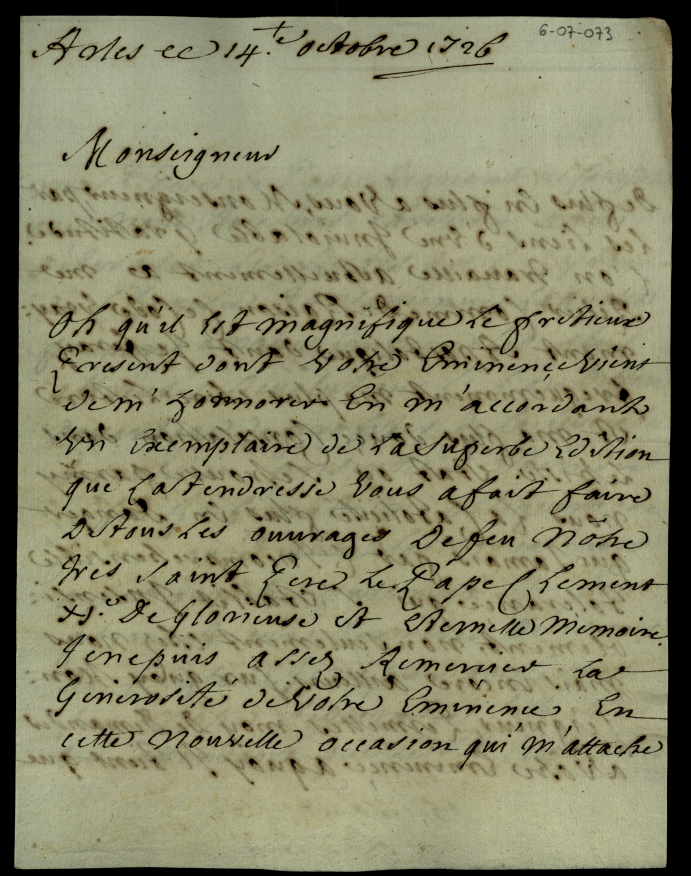 6-07-073
Arles ce 14.te octobre 1726
Monseigneur
Oh qu'il Est magnifique Le pretieux
Present dont Votre Eminençe Vient
de m'honnorer En m'accordant
Un Exemplaire de La Superbe Edition
que La tendresse Vous a fait faire
De tous Les ouvrages De feu Nôtre
tres Saint Pere Le Pape Clement
XI.e De Glorieuse et Eternelle Memoire.
Je ne puis assez Remercier La
Generosité de Votre Eminence En
cette Nouvelle occasion qui m'attache